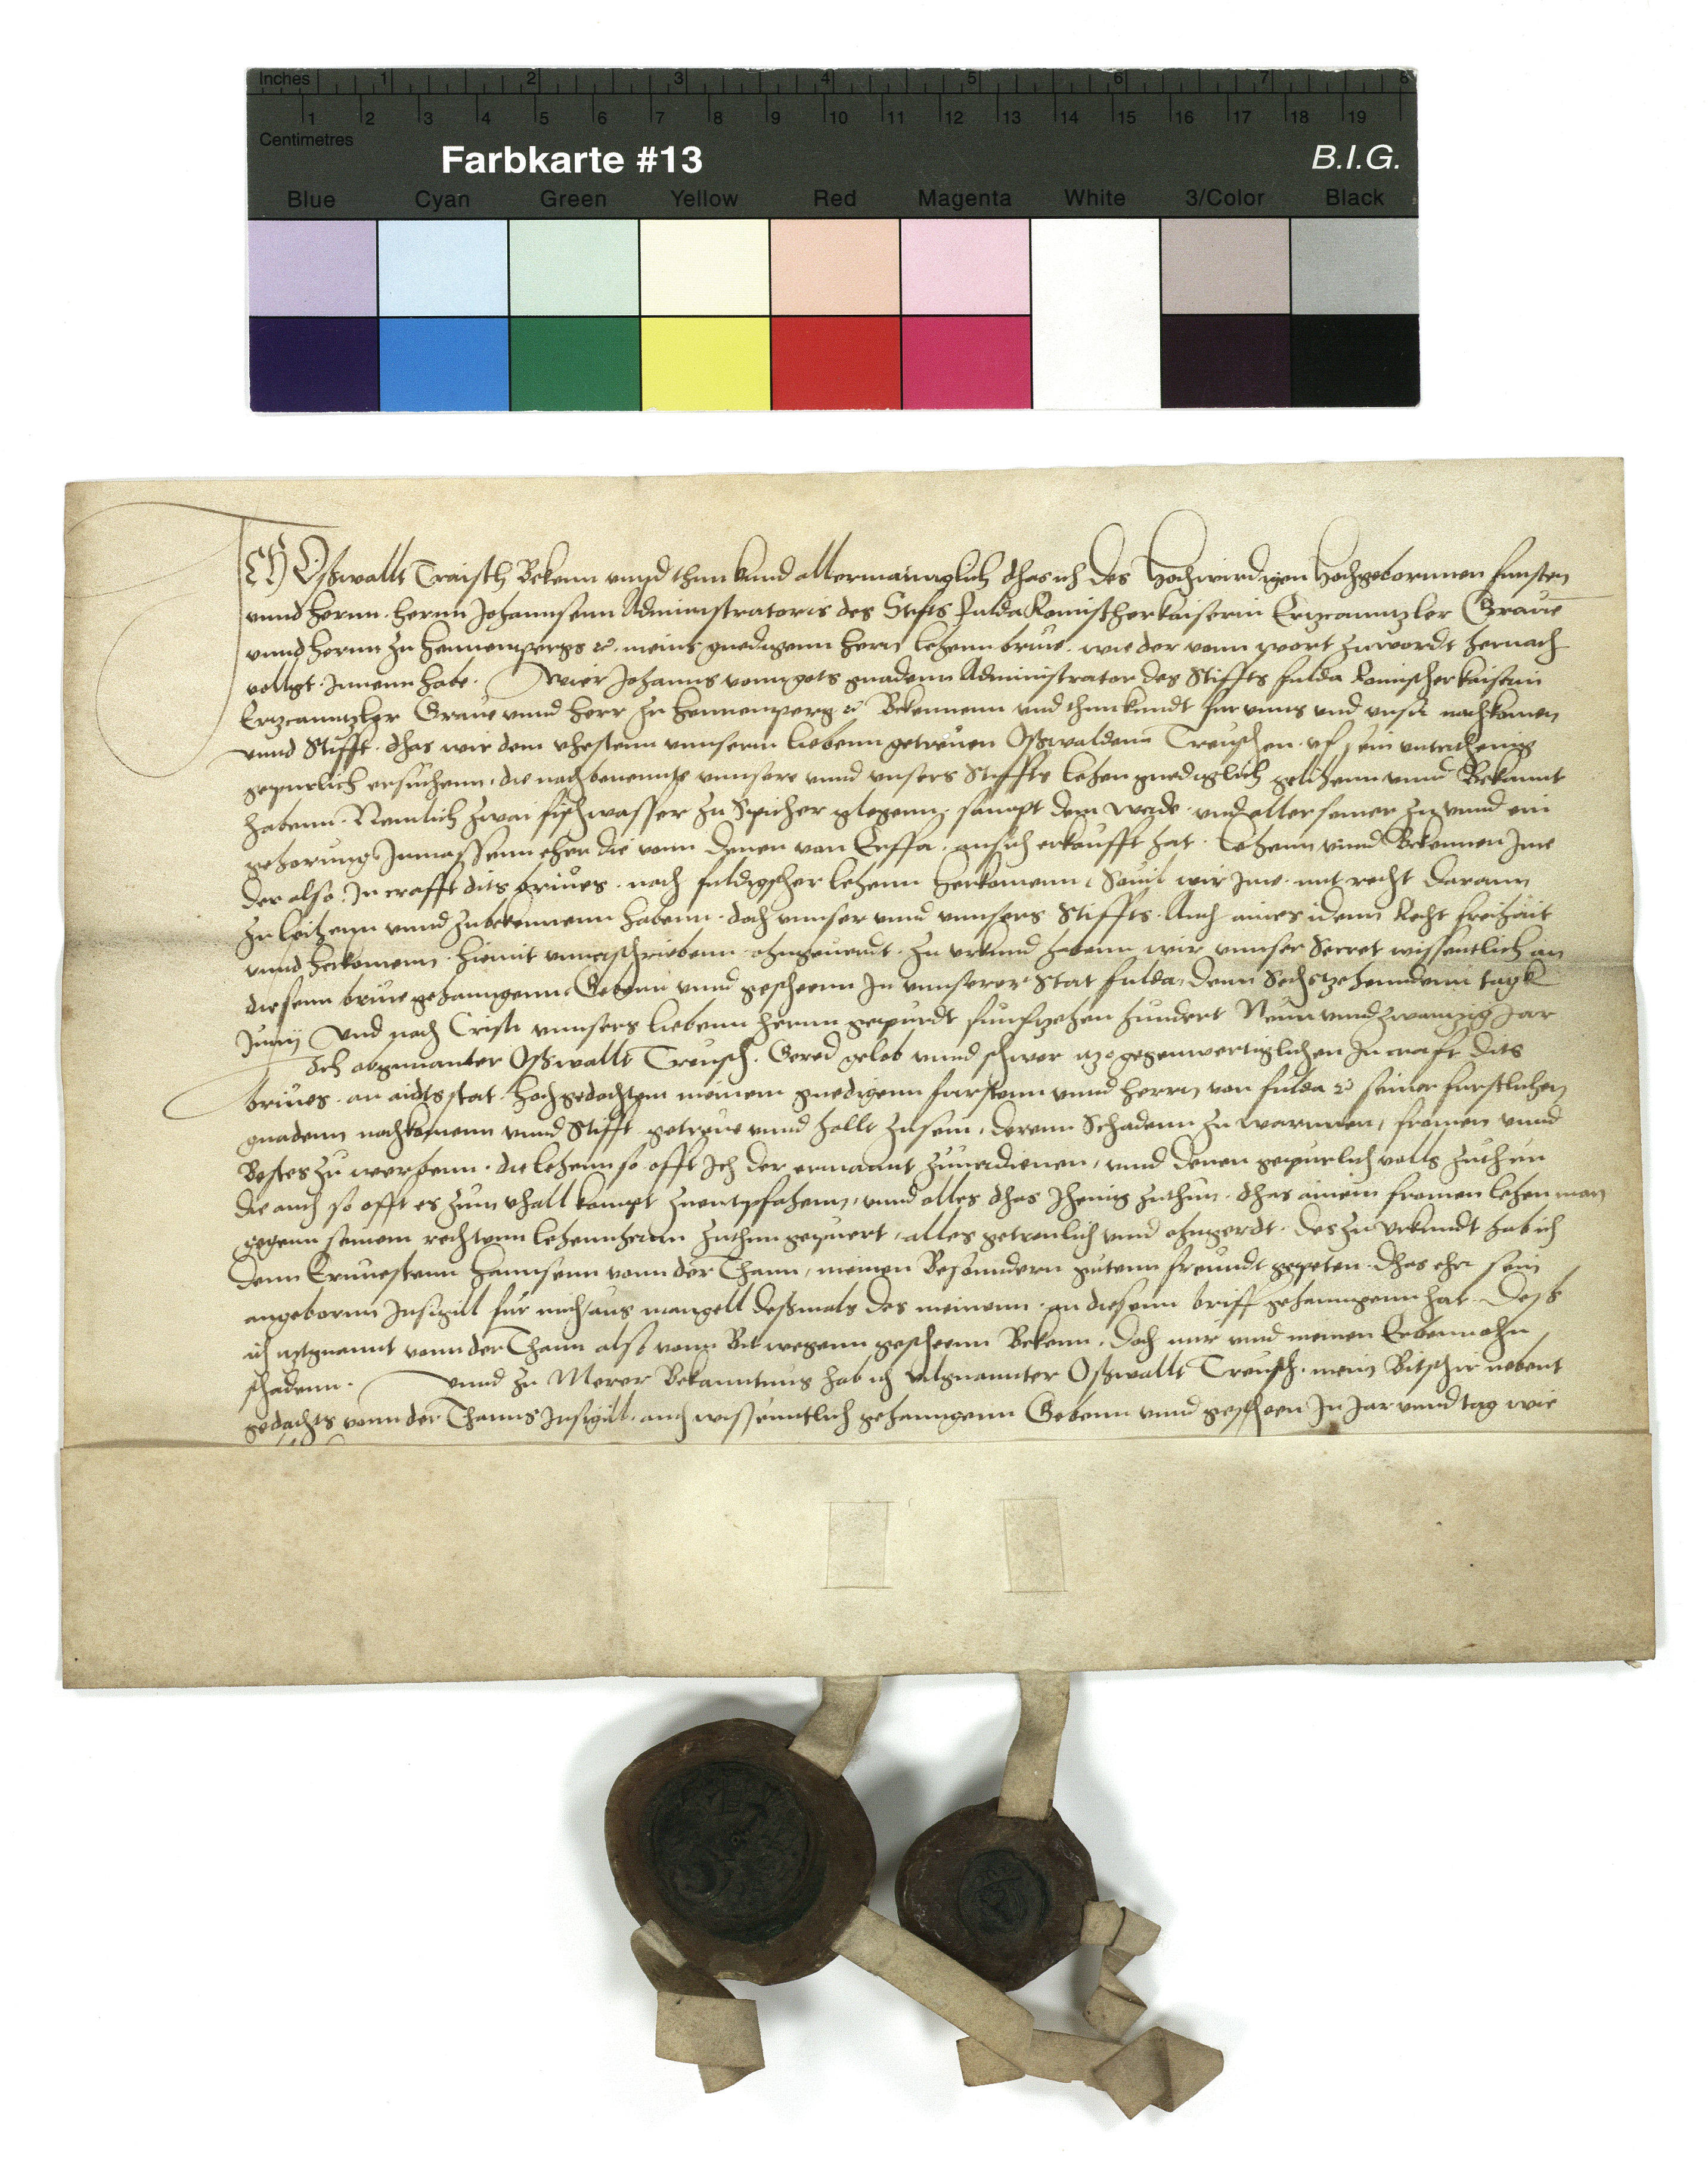 Inches 1 2 3 4 5 6 7 8
1 2 3 4 5 6 7 8 9 10 11 12 13 14 15 16 17 18 19
Centimetres
Farbkarte #13 B.I.G.
Blue Cyan Green Yellow Red Magenta White 3/Color Black
ICH Oßwallt Traisch Bekenn vnnd thun kund allermainniglich dhas ich des Hochwirdigen Hochgebornnen fursten
vnnd hernn. hernn Johannsenn Administratoris des Stifts fulda Romischer kaiserin Ertzcanntzler Graue
vnnd hernn zu hennenpergs ec. meins gnedigenn hern lehenn briue. wie der vonn wort zuwordt hernach
vollgt. Innenn habe. Wier Johanns vonn gots gnadenn Administrator des Stiffts fulda Romischer kaiserin
Ertzcanntzler Graue vnnd herr zu hennenperg ec Bekennenn vnd thun kundt fur vnns vnd vnser nachkomen
vnnd Stifft. dhas wir dem vhestenn vnnserm liebenn getreuen Oßwaldenn Treuschen. vf sein vnterthenig
gepurlich ersuchenn. die nachbenennte vnnsere vnnd vnsers Stiffts lehen gnediglich gelihenn vnnd Bekannt
habenn. Nemlich zwai fischwasser zu Spicher glegenn. sampt dem weyde. vnd aller seiner zu vnnd ein
gehorung Inmassenn ehr die vonn denen von Erffa. an sich erkaufft hat. Leihenn vnnd Bekennen Ime
der also. In crafft dits briues. nach fuldischer lehenn herkomenn. Souil wir Ime. mit recht darann
zu leihenn vnnd zubekennenn habenn. doch vnnser vnnd vnnsers Stiffts. Auch aines idenn Recht freihait
vnnd herkomenn. hiemit vnuerschriebenn. ohngeuerdt. zu vrkund habenn wir vnnser Secret wissentlich an
diesenn briue gehanngenn. Gebenn vnnd gescheenn In vnnserer Stat fulda. denn Sechszehenndenn tagk
Junij vnd nach Cristi vnnsers liebenn hernn gepurdt funfzehen hundert Neun vnnd zwanzig Jar
Ich obgenanter Oßwallt Treusch. Gered gelob vnnd schwer itzo gegenwertiglichen In craft dits
briues. an aidts stat. hochgedachtem meinem gnedigenn furstenn vnnd herrn von fulda ec seiner furstlichen
gnadenn nachkomenn vnnd Stifft getreue vnnd hollt zusein. derenn Schadenn zu warnnen, fromen vnnd
Bestes zu werbenn. die lehenn so offt Ich der ermannt zuuerdienen, vnnd denen gepurlich volls zuthun
die auch so offt es zum vhall kompt zuentpfahenn, vnnd alles dhas Jhenig zuthun. dhas ainem fromen lehen man
gegenn seinem rechtenn lehennherrn zuthun gepuert, alles getreulich vnnd ohngeerdt. Des zu Vrkundt hab ich
denn Ernuestenn hannsenn vonn der Thann, meinen Besonndern gutenn freundt gepeten. dhas ehr sein
angebornn Insigill fur mich aus mangell deßmals des meinenn. an diesenn briff gehanngenn hat. Deß
ich itztgnannt vonn der Thann also vonn Bit wegenn gescheenn Bekenn. doch mir vnnd meinen Erbenn ohn
schadenn. Vnnd zu Merer Bekanntnus hab ich vilgnannter Oßwallt Treusch. mein Bitschir nebent
gedachts vonn der Thanns Insigill. auch wissenntlich gehanngenn Gebenn vnnd gescheen In Jar vnnd tag wie